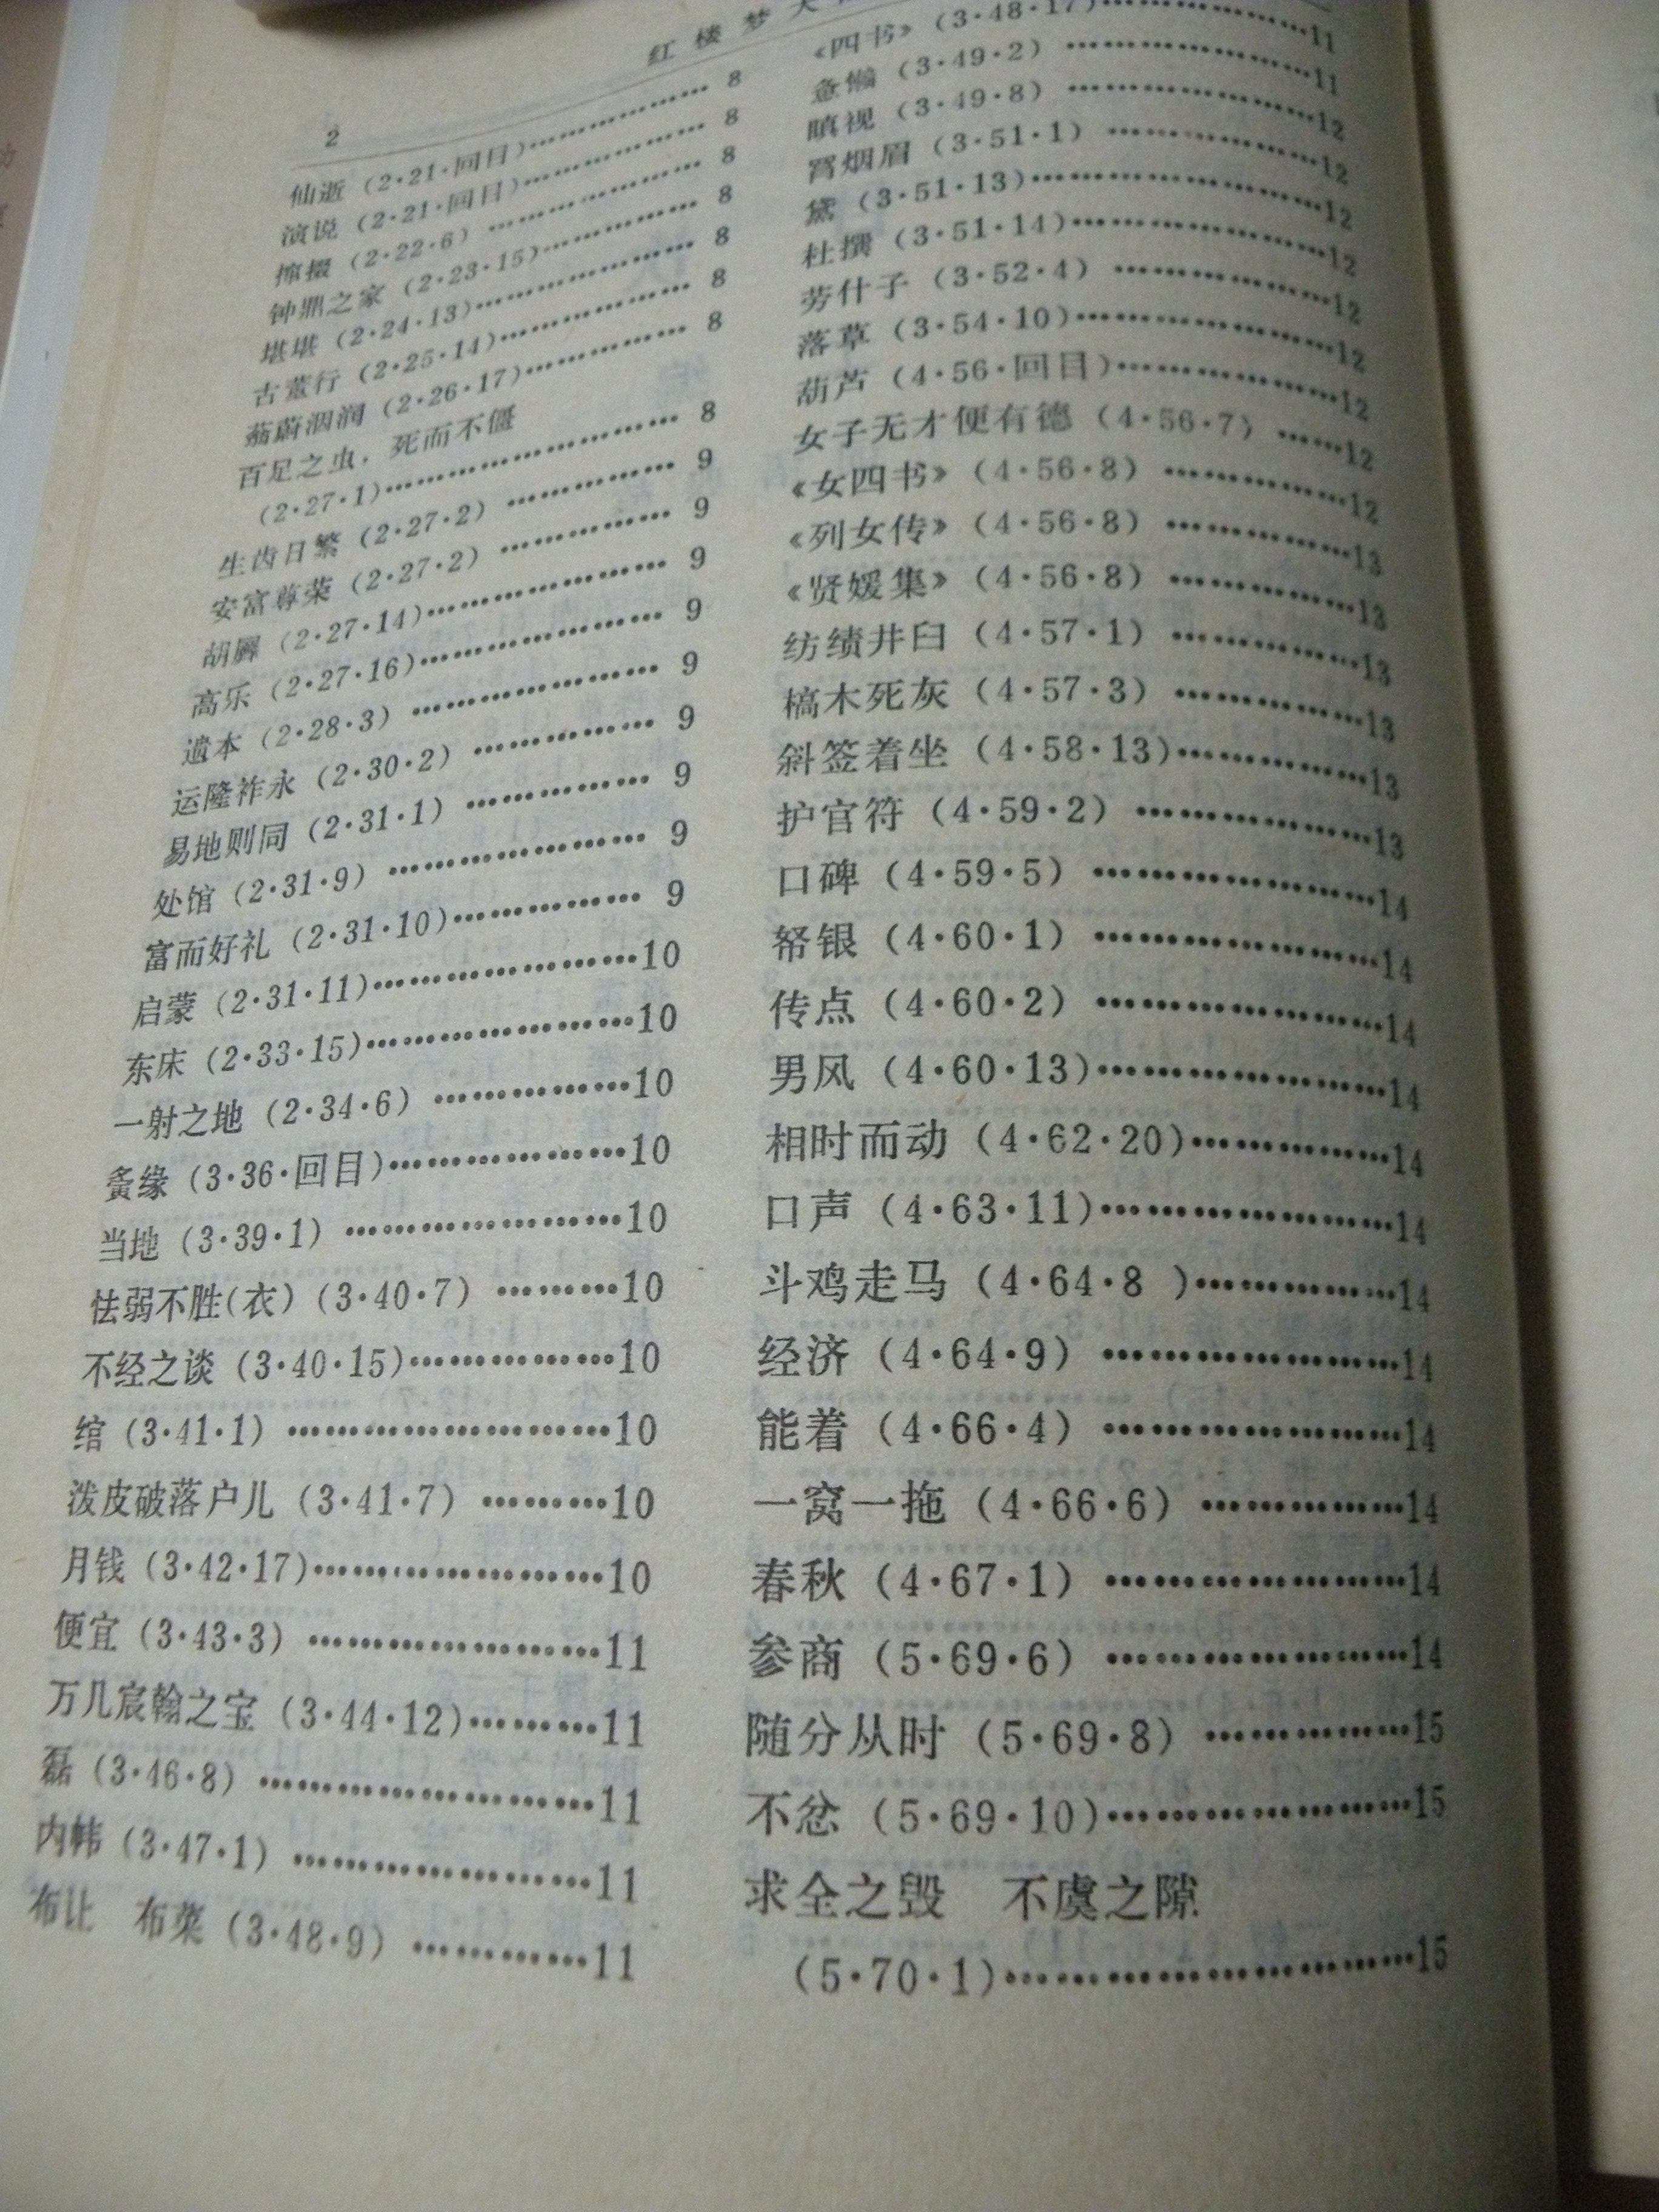 2
红楼梦大
仙逝（2·21·回目）…………………… 8
演说（2·21·回目）…………………… 8
撺掇（2·22·6）…………………… 8
钟鼎之家（2·23·15）………………… 8
堪堪（2·24·13）…………………… 8
古董行（2·25·14）………………… 8
蓊蔚洇润（2·26·17）………………… 8
百足之虫，死而不僵
（2·27·1）………………………… 8
生齿日繁（2·27·2）……………… 9
安富尊荣（2·27·2）……………… 9
胡羼（2·27·14）…………………… 9
高乐（2·27·16）…………………… 9
遗本（2·28·3）…………………… 9
运隆祚永（2·30·2）……………… 9
易地则同（2·31·1）……………… 9
处馆（2·31·9）…………………… 9
富而好礼（2·31·10）……………… 9
启蒙（2·31·11）……………………10
东床（2·33·15）……………………10
一射之地（2·34·6）………………10
夤缘（3·36·回目）…………………10
当地（3·39·1）……………………10
怯弱不胜（衣）（3·40·7）…………10
不经之谈（3·40·15）………………10
绾（3·41·1）………………………10
泼皮破落户儿（3·41·7）…………10
月钱（3·42·17）……………………10
便宜（3·43·3）……………………11
万几宸翰之宝（3·44·12）…………11
磊（3·46·8）………………………11
内帏（3·47·1）……………………11
布让　布菜（3·48·9）……………11
《四书》（3·48·17）…………………11
惫懒（3·49·2）……………………11
瞋视（3·49·8）……………………12
罥烟眉（3·51·1）…………………12
黛（3·51·13）………………………12
杜撰（3·51·14）……………………12
劳什子（3·52·4）…………………12
落草（3·54·10）……………………12
葫芦（4·56·回目）…………………12
女子无才便有德（4·56·7）……12
《女四书》（4·56·8）………………12
《列女传》（4·56·8）………………13
《贤媛集》（4·56·8）………………13
纺绩井臼（4·57·1）………………13
槁木死灰（4·57·3）………………13
斜签着坐（4·58·13）………………13
护官符（4·59·2）…………………13
口碑（4·59·5）……………………14
帑银（4·60·1）……………………14
传点（4·60·2）……………………14
男风（4·60·13）……………………14
相时而动（4·62·20）………………14
口声（4·63·11）……………………14
斗鸡走马（4·64·8 ）………………14
经济（4·64·9）……………………14
能着（4·66·4）……………………14
一窝一拖（4·66·6）………………14
春秋（4·67·1）……………………14
参商（5·69·6）……………………14
随分从时（5·69·8）………………15
不忿（5·69·10）……………………15
求全之毁　不虞之隙
（5·70·1）…………………………15